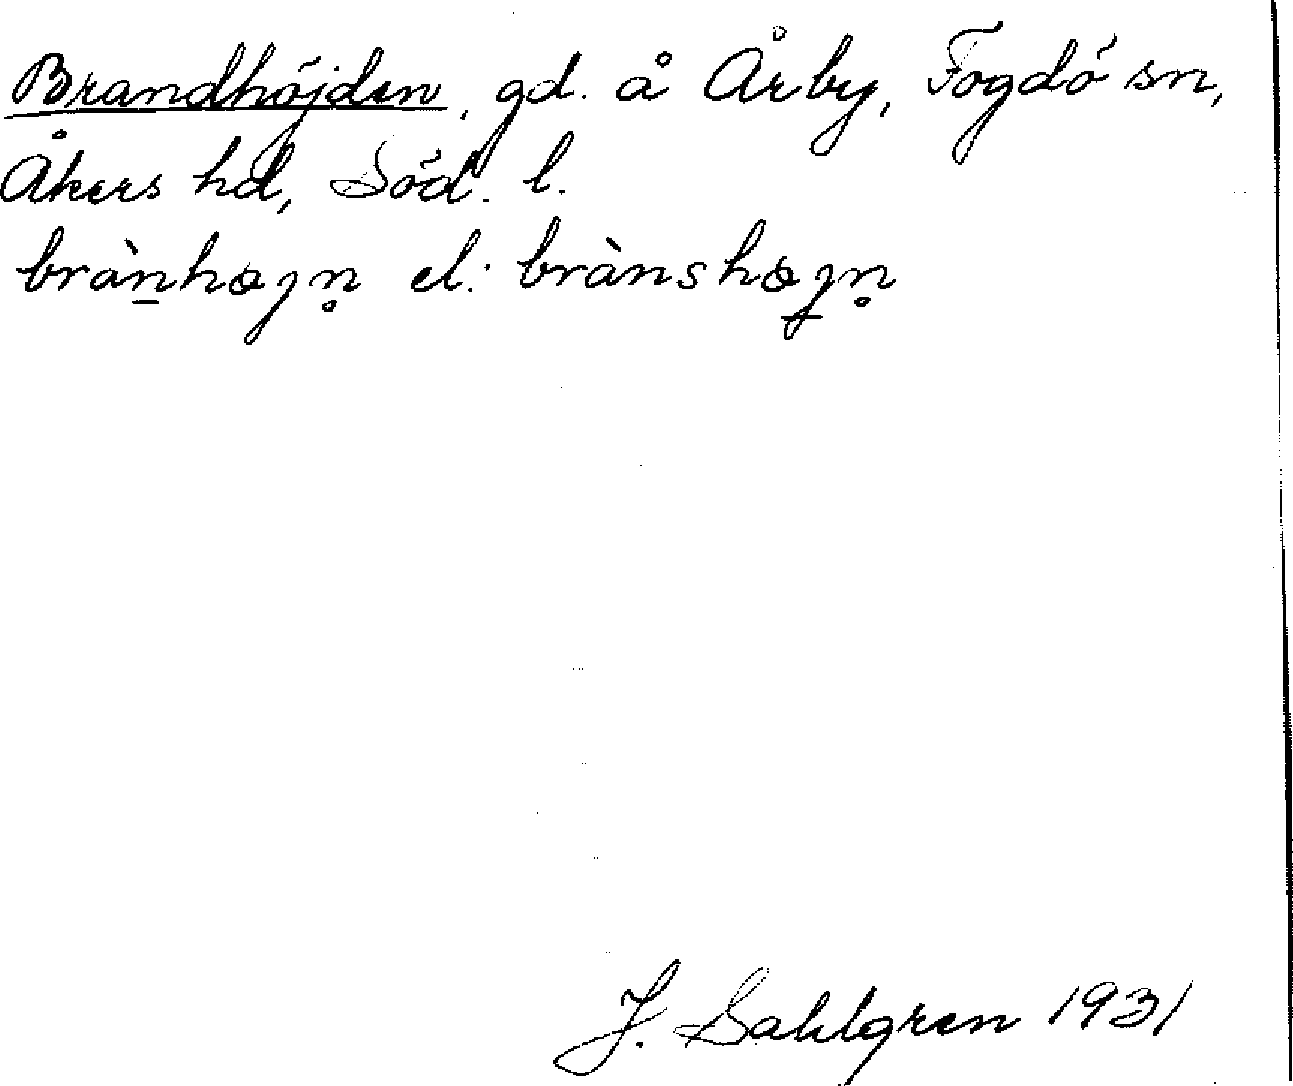 Brandhöjden, gd. å Årby, Fogdö sn,
Åkers hd, Söd. l.
bràn̲højn̥ el. brànshøjn̥
J. Sahlgren 1931